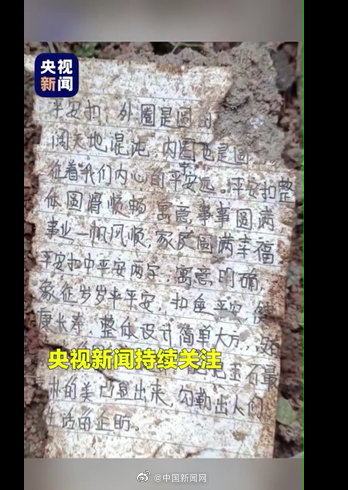 央视
新闻
平安扣：外圈是圆的
阔天地混沌，内圈也是圆
征着我们内心的平安远。平安扣整
体圆滑顺畅寓意，事事圆满
事业一帆风顺，家庭圆满幸福
平安扣中平安两字，寓意明确，
象征岁岁平平安，扣住平安，健
康长寿，整体设计简单大方，
央视新闻持续关注
玉石最
朴的美凸显出来，勾勒出人们
生活的企盼。
@中国新闻网